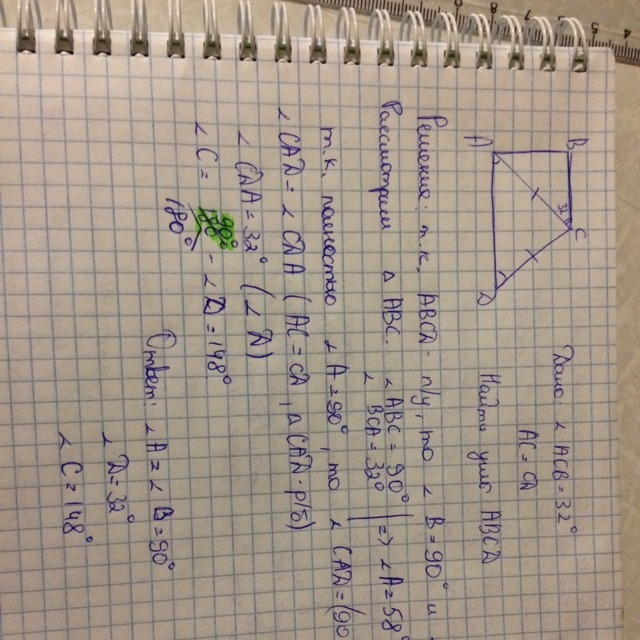 Дано ∠ ACB = 32°
AC = CD
Найти углы ABCD
B
3
C
A
D
Решение: т.к. ABCD - п/у, то ∠ B = 90° и
Рассмотрим Δ ABC. ∠ ABC = 90° | => ∠A = 58°
∠ BCA = 32°
т.к. полностью ∠ A = 90°, то ∠ CAD = (90
∠ CAD = ∠ CDA (AC = CD, Δ CAD - р/б)
∠ CDA = 32° (∠ D)
∠ C = 180° - ∠ D = 148°
Ответ: ∠ A = ∠ B = 90°
∠ D = 32°
∠ C = 148°
4
5
7
8